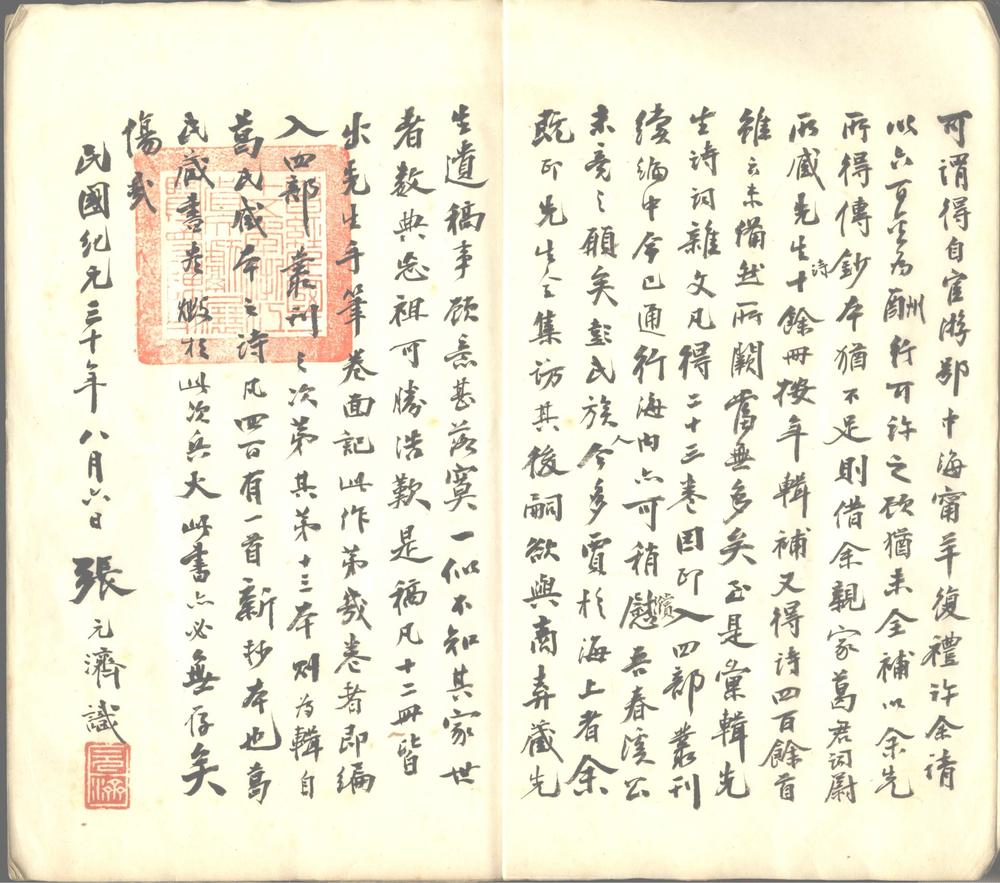 可謂得自宦游鄂中海甯羊復禮許余請
以六百金爲酬行可許之顧猶未全補以余先
所得傳鈔本猶不足則借余親家葛君詞蔚
所藏先生詩十餘冊按年輯補又得詩四百餘首
雖云未備然所闕當無多矣至是彙輯先
生詩詞雜文凡得二十三卷因印入四部叢刊
續編中今已通行海内亦可稍慰吾春溪公
未竟之願矣彭氏族人今多賈於海上者余
既印先生全集訪其後嗣欲與商弆藏先
生遺稿事顧意甚落寞一似不知其家世
者數典忘祖可勝浩歎是稿凡十二冊皆
出先生手筆卷面記此作第幾卷者即編
入四部叢刊之次第其第十三本則爲輯自
葛氏藏本之詩凡四百有一首新抄本也葛
氏藏書太燬於此次兵火此書亦必無存矣
傷哉
民國紀元三十年八月六日張元濟識